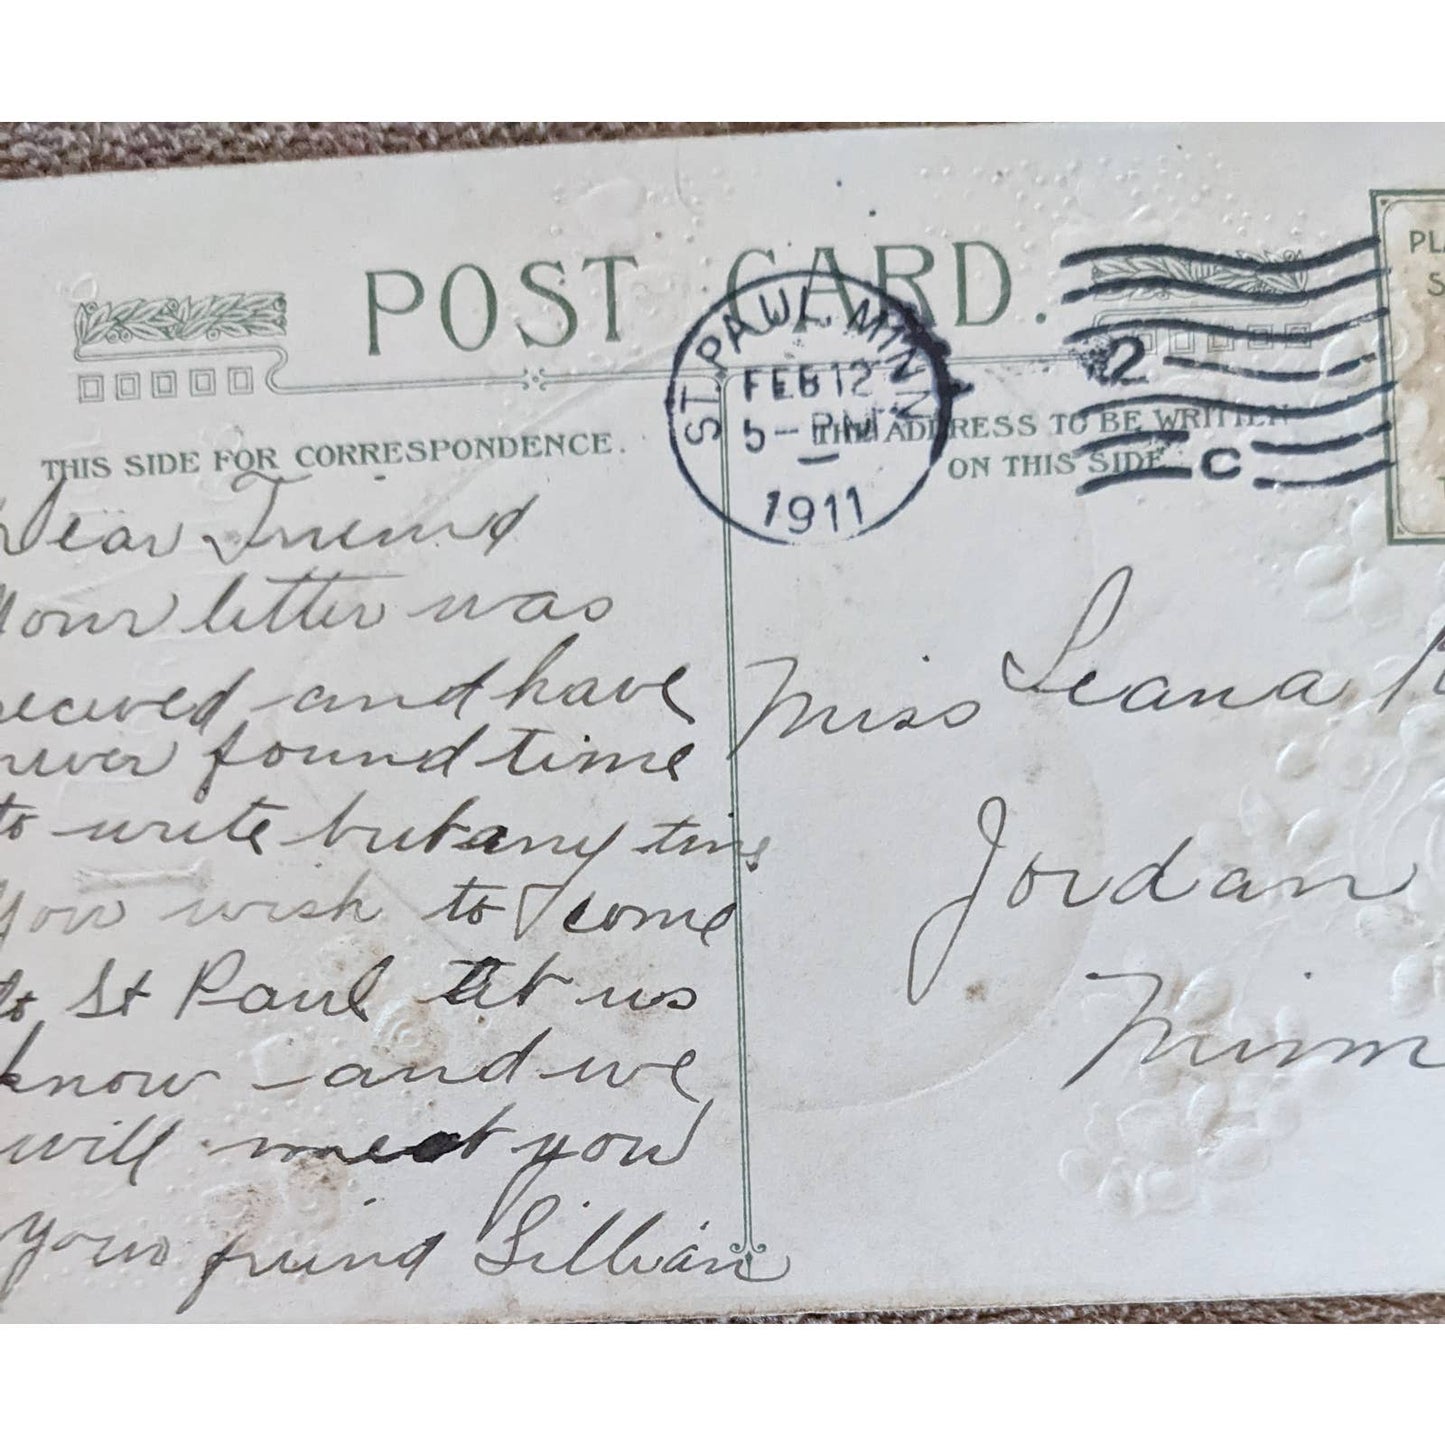 POST CARD.
THIS SIDE FOR CORRESPONDENCE.
THE ADDRESS TO BE WRITTEN
ON THIS SIDE
ST. PAUL, MINN.
FEB 12
5 - PM
1911
2
C
PL
S
T
Dear Friend
Your letter was
recieved and have
never found time
to write but any time
you wish to come
to St Paul let us
know and we
will meet you
Your friend Lillian
Miss Leana
Jordan
Minn